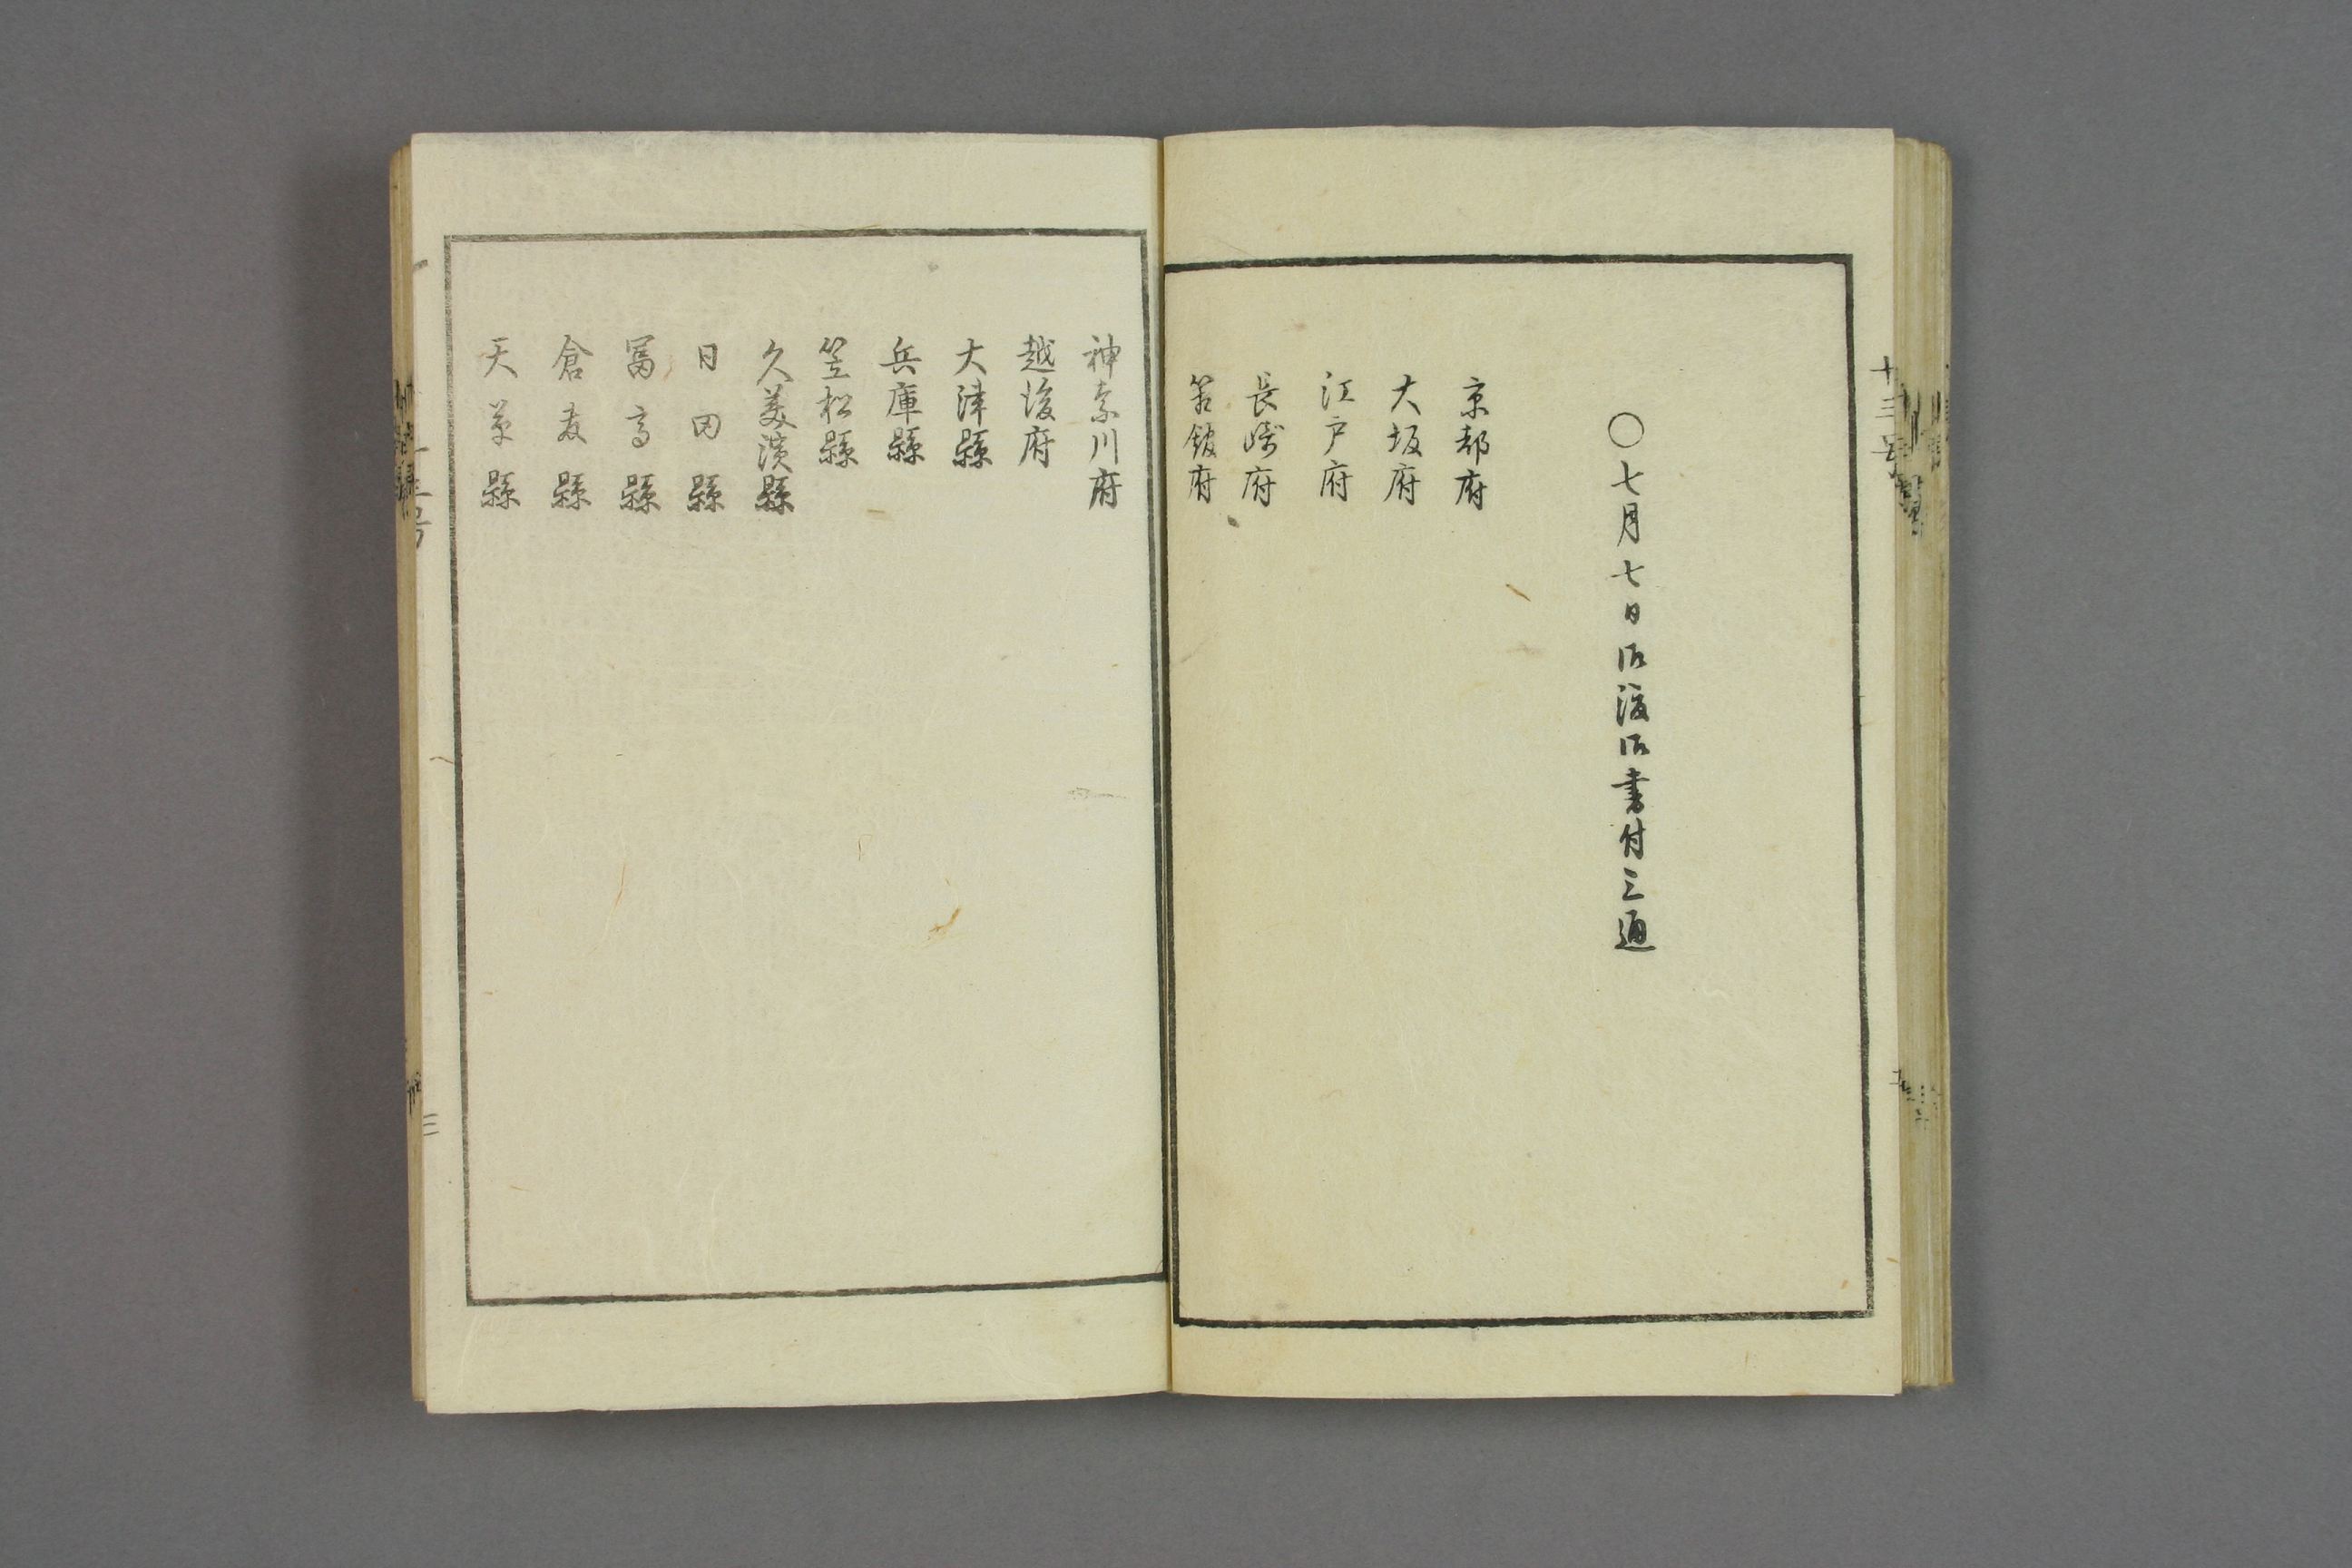 〇七月七日御渡御書付三通
京都府
大坂府
江戸府
長崎府
箱館府
神奈川府
越後府
大津縣
兵庫縣
笠松縣
久美濱縣
日田縣
冨高縣
倉敷縣
天草縣
十三号
三